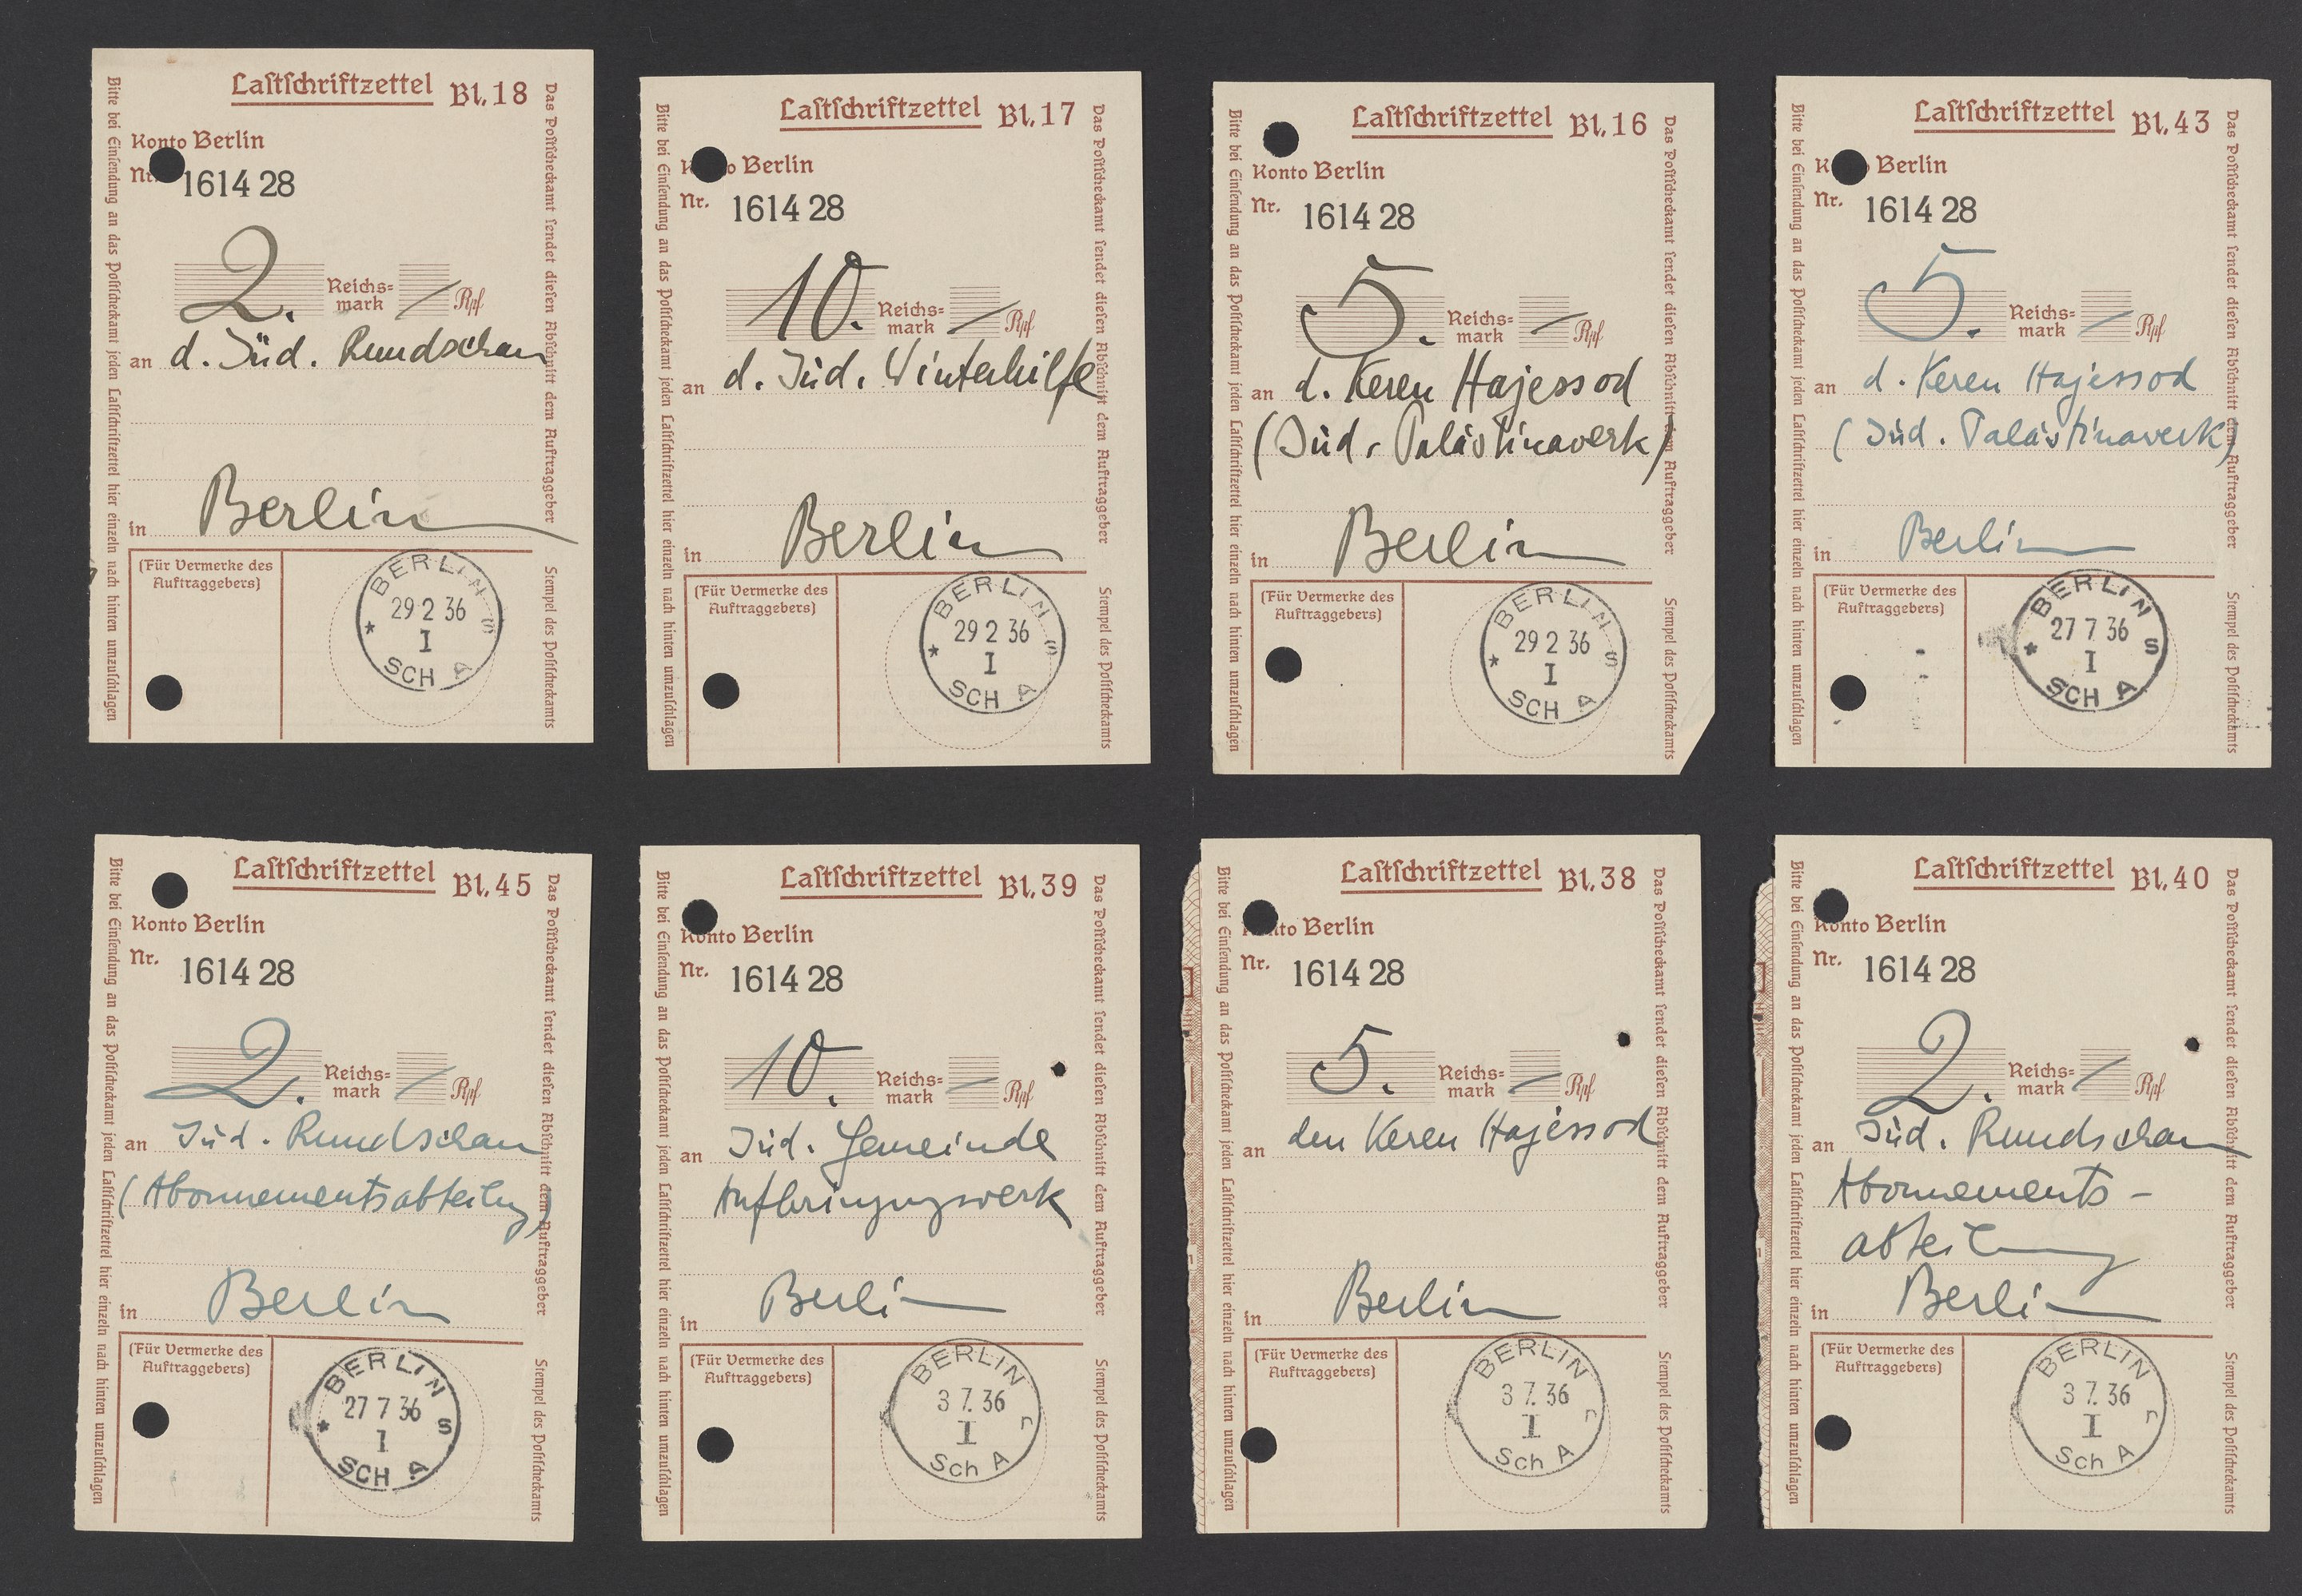 Laſtſchriftzettel Bl. 18
Bitte bei Einſendung an das Poſtſcheckamt jeden Laſtſchriftzettel hier einzeln nach hinten umzuſchlagen
Das Poſtſcheckamt ſendet dieſen Abſchnitt dem Auftraggeber
Konto Berlin
Nr. 1614 28
2. Reichs=
mark — Rpf
an d. Jüd. Rundschau
in Berlin
(Für Vermerke des
Auftraggebers)
Stempel des Poſtſcheckamts
BERLIN S
29 2 36
I
* SCH A
Laſtſchriftzettel Bl. 17
Bitte bei Einſendung an das Poſtſcheckamt jeden Laſtſchriftzettel hier einzeln nach hinten umzuſchlagen
Das Poſtſcheckamt ſendet dieſen Abſchnitt dem Auftraggeber
Konto Berlin
Nr. 1614 28
10. Reichs=
mark — Rpf
an d. Jüd. Winterhilfe
in Berlin
(Für Vermerke des
Auftraggebers)
Stempel des Poſtſcheckamts
BERLIN S
29 2 36
I
* SCH A
Laſtſchriftzettel Bl. 16
Bitte bei Einſendung an das Poſtſcheckamt jeden Laſtſchriftzettel hier einzeln nach hinten umzuſchlagen
Das Poſtſcheckamt ſendet dieſen Abſchnitt dem Auftraggeber
Konto Berlin
Nr. 1614 28
5. Reichs=
mark — Rpf
an d. Keren Hajessod
(Jüd. Palästinawerk)
in Berlin
(Für Vermerke des
Auftraggebers)
Stempel des Poſtſcheckamts
BERLIN S
29 2 36
I
* SCH A
Laſtſchriftzettel Bl. 43
Bitte bei Einſendung an das Poſtſcheckamt jeden Laſtſchriftzettel hier einzeln nach hinten umzuſchlagen
Das Poſtſcheckamt ſendet dieſen Abſchnitt dem Auftraggeber
Konto Berlin
Nr. 1614 28
5. Reichs=
mark — Rpf
an d. Keren Hajessod
(Jüd. Palästinawerk)
in Berlin
(Für Vermerke des
Auftraggebers)
Stempel des Poſtſcheckamts
BERLIN S
27 7 36
I
* SCH A
Laſtſchriftzettel Bl. 45
Bitte bei Einſendung an das Poſtſcheckamt jeden Laſtſchriftzettel hier einzeln nach hinten umzuſchlagen
Das Poſtſcheckamt ſendet dieſen Abſchnitt dem Auftraggeber
Konto Berlin
Nr. 1614 28
2. Reichs=
mark — Rpf
an Jüd. Rundschau
(Abonnementsabteilung)
in Berlin
(Für Vermerke des
Auftraggebers)
Stempel des Poſtſcheckamts
BERLIN S
27 7 36
I
* SCH A
Laſtſchriftzettel Bl. 39
Bitte bei Einſendung an das Poſtſcheckamt jeden Laſtſchriftzettel hier einzeln nach hinten umzuſchlagen
Das Poſtſcheckamt ſendet dieſen Abſchnitt dem Auftraggeber
Konto Berlin
Nr. 1614 28
10. Reichs=
mark — Rpf
an Jüd. Gemeinde
Aufbringungswerk
in Berlin
(Für Vermerke des
Auftraggebers)
Stempel des Poſtſcheckamts
BERLIN r
3 7. 36
I
Sch A
Laſtſchriftzettel Bl. 38
Bitte bei Einſendung an das Poſtſcheckamt jeden Laſtſchriftzettel hier einzeln nach hinten umzuſchlagen
Das Poſtſcheckamt ſendet dieſen Abſchnitt dem Auftraggeber
Konto Berlin
Nr. 1614 28
5. Reichs=
mark — Rpf
an den Keren Hajessod
in Berlin
(Für Vermerke des
Auftraggebers)
Stempel des Poſtſcheckamts
BERLIN r
3 7. 36
I
Sch A
Laſtſchriftzettel Bl. 40
Bitte bei Einſendung an das Poſtſcheckamt jeden Laſtſchriftzettel hier einzeln nach hinten umzuſchlagen
Das Poſtſcheckamt ſendet dieſen Abſchnitt dem Auftraggeber
Konto Berlin
Nr. 1614 28
2. Reichs=
mark — Rpf
an Jüd. Rundschau
Abonnements-
abteilung
in Berlin
(Für Vermerke des
Auftraggebers)
Stempel des Poſtſcheckamts
BERLIN r
3 7. 36
I
Sch A